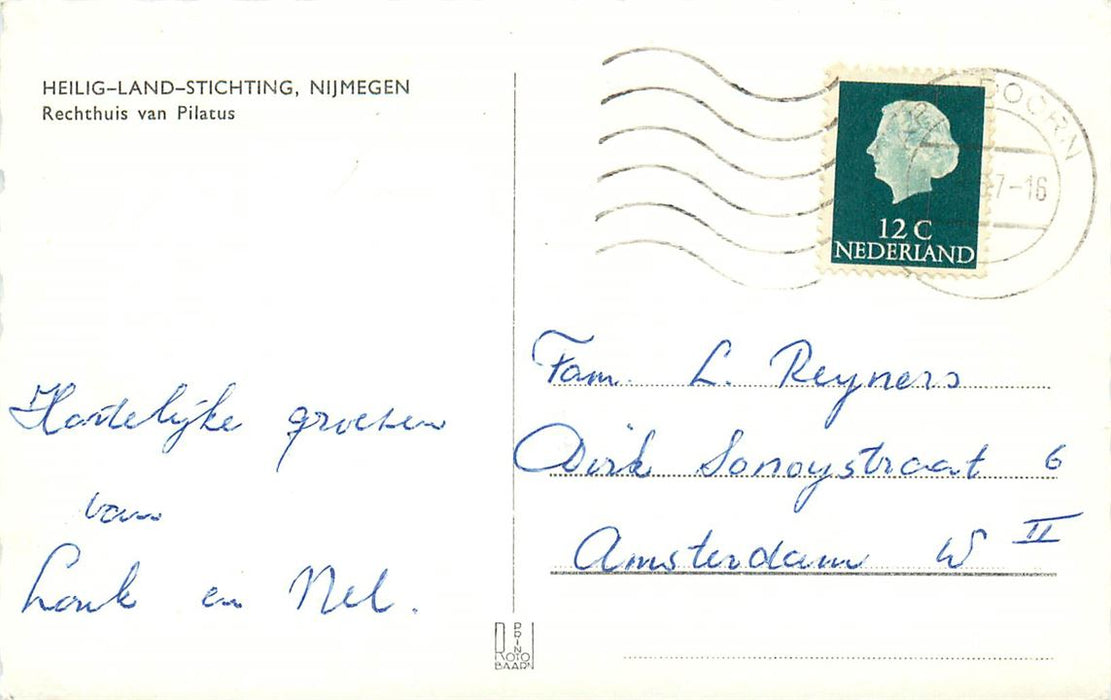 HEILIG-LAND-STICHTING, NIJMEGEN
Rechthuis van Pilatus
12 C
NEDERLAND
DOORN
7-16
Hartelijke groeten
van
Louk en Nel.
Fam. L. Reyners
Dirk Sonoystraat 6
Amsterdam W II
PRINT
ROTO
BAARN